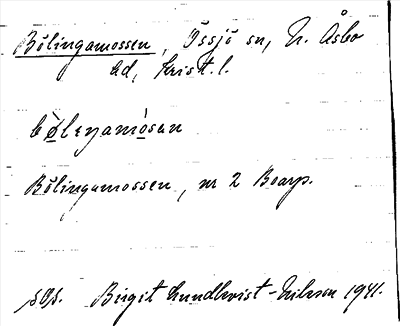 Bölingamossen, Össjö sn, N. Åsbo
hd, Krist. l.
bø̀leŋamósan
Bölingamossen, nr 2 Boarp.
sås. Birgit Lundkvist-Nilsson 1941.